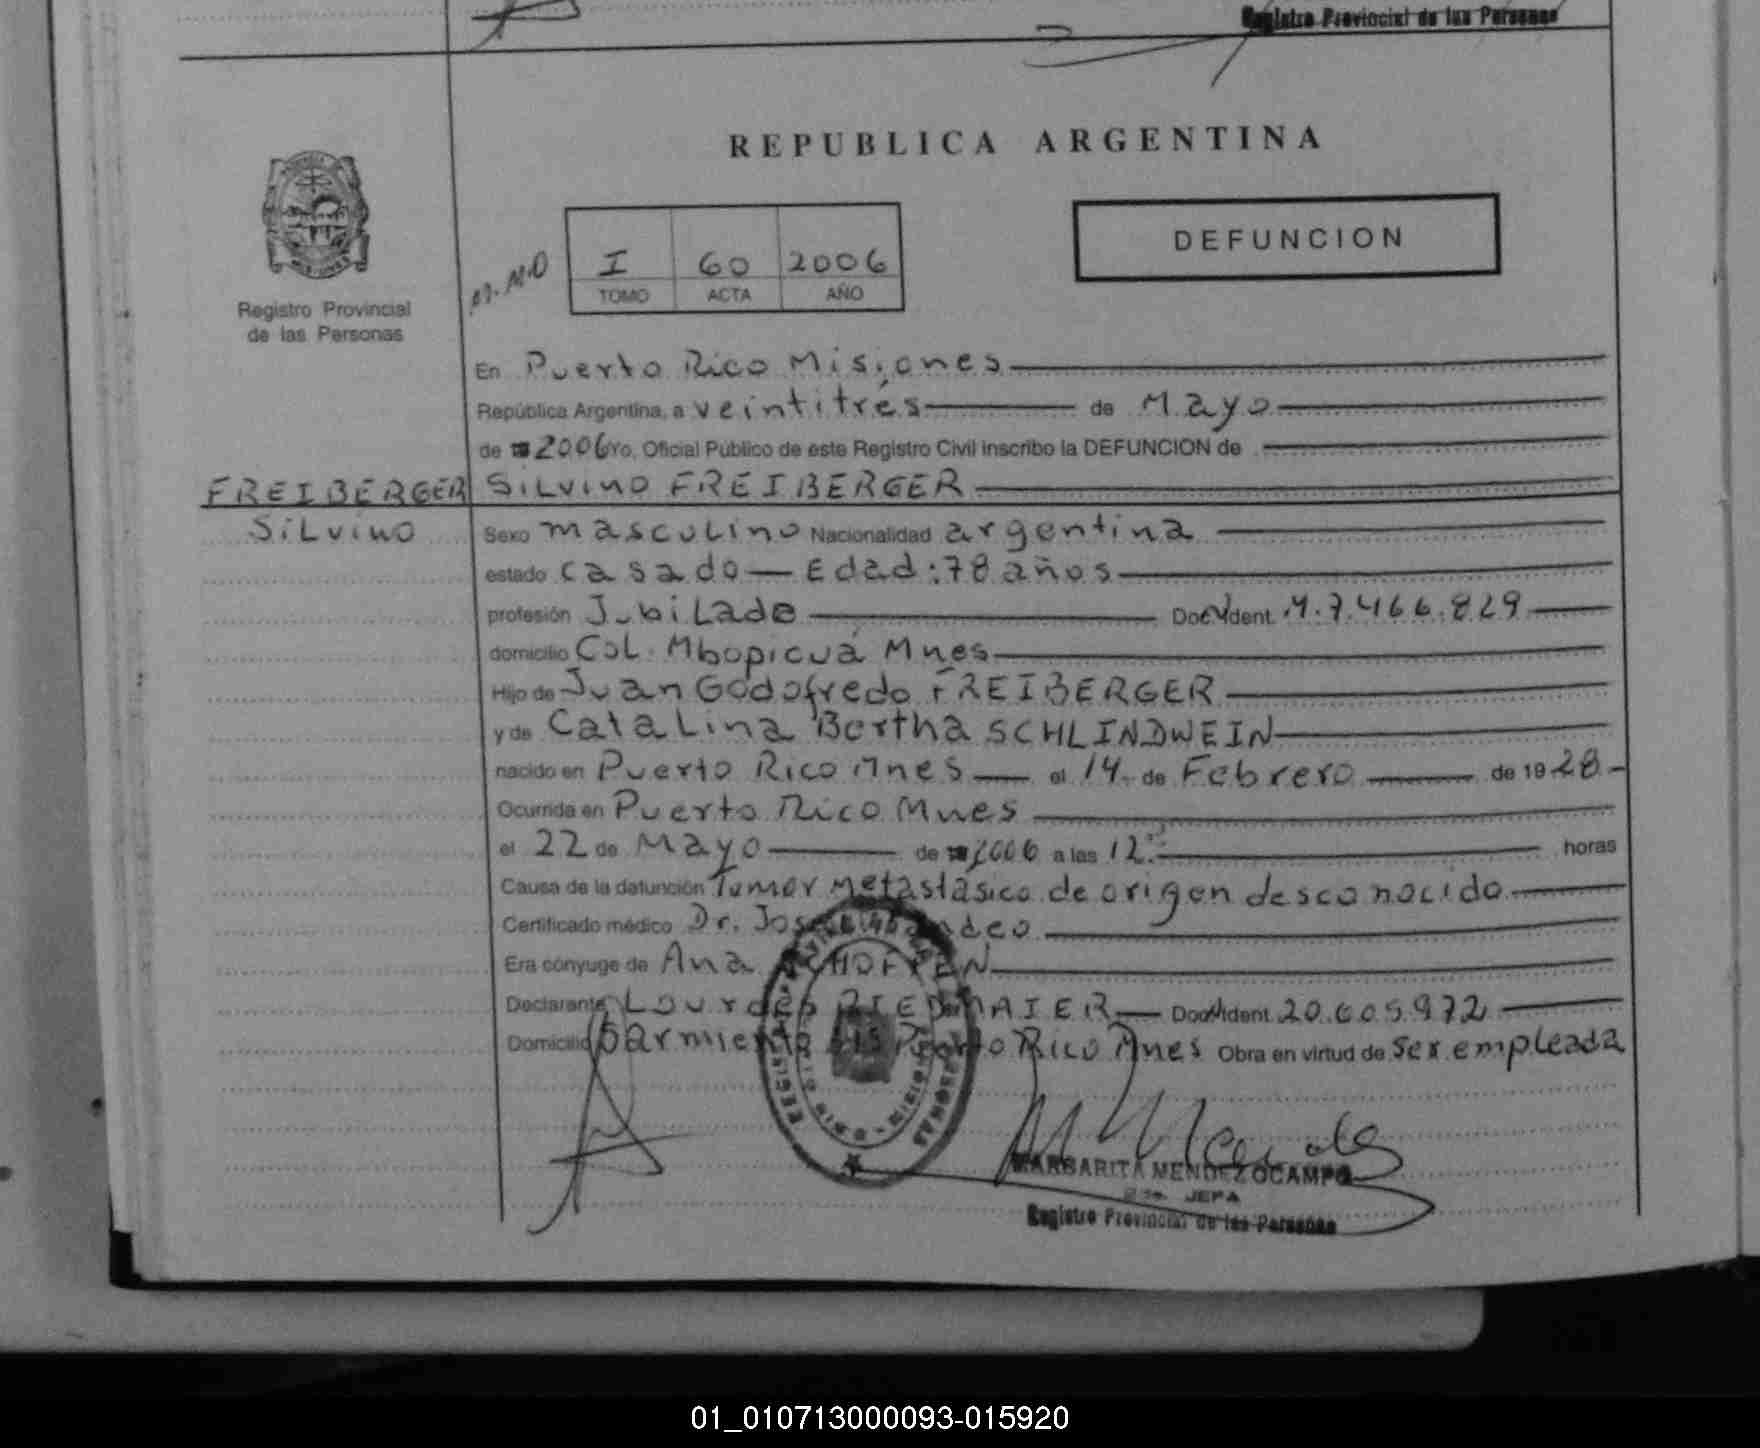 Registro Provincial de las Personas
REPUBLICA ARGENTINA
DEFUNCION
I 60 2006
TOMO ACTA AÑO
Registro Provincial
de las Personas
En Puerto Rico Misiones
República Argentina, a veintitrés de Mayo
de 2006 Yo, Oficial Público de este Registro Civil inscribo la DEFUNCION de
FREIBERGER SiLvino FREIBERGER
SiLvino Sexo masculino Nacionalidad argentina
estado casado Edad: 78 años
profesión JubiLado Doc. Ident. M.7.466.829
domicilio Col. Mbopicuá Mnes
Hijo de Juan Godofredo FREIBERGER
y de CataLina Bertha SCHLINDWEIN
nacido en Puerto Rico Mnes el 14 de Febrero de 1928
Ocurrida en Puerto Rico Mnes
el 22 de Mayo de 2006 a las 12 horas
Causa de la defunción Tumor metastásico de origen desconocido
Certificado médico Dr. José
Era cónyuge de Ana
Declarante Lourdes RIEDMAIER Doc. Ident. 20.605.972
Domicilio Sarmiento Puerto Rico Mnes Obra en virtud de Ser empleada
MARGARITA MENDEZ OCAMPO
JEFA
Registro Provincial de las Personas
01_010713000093-015920